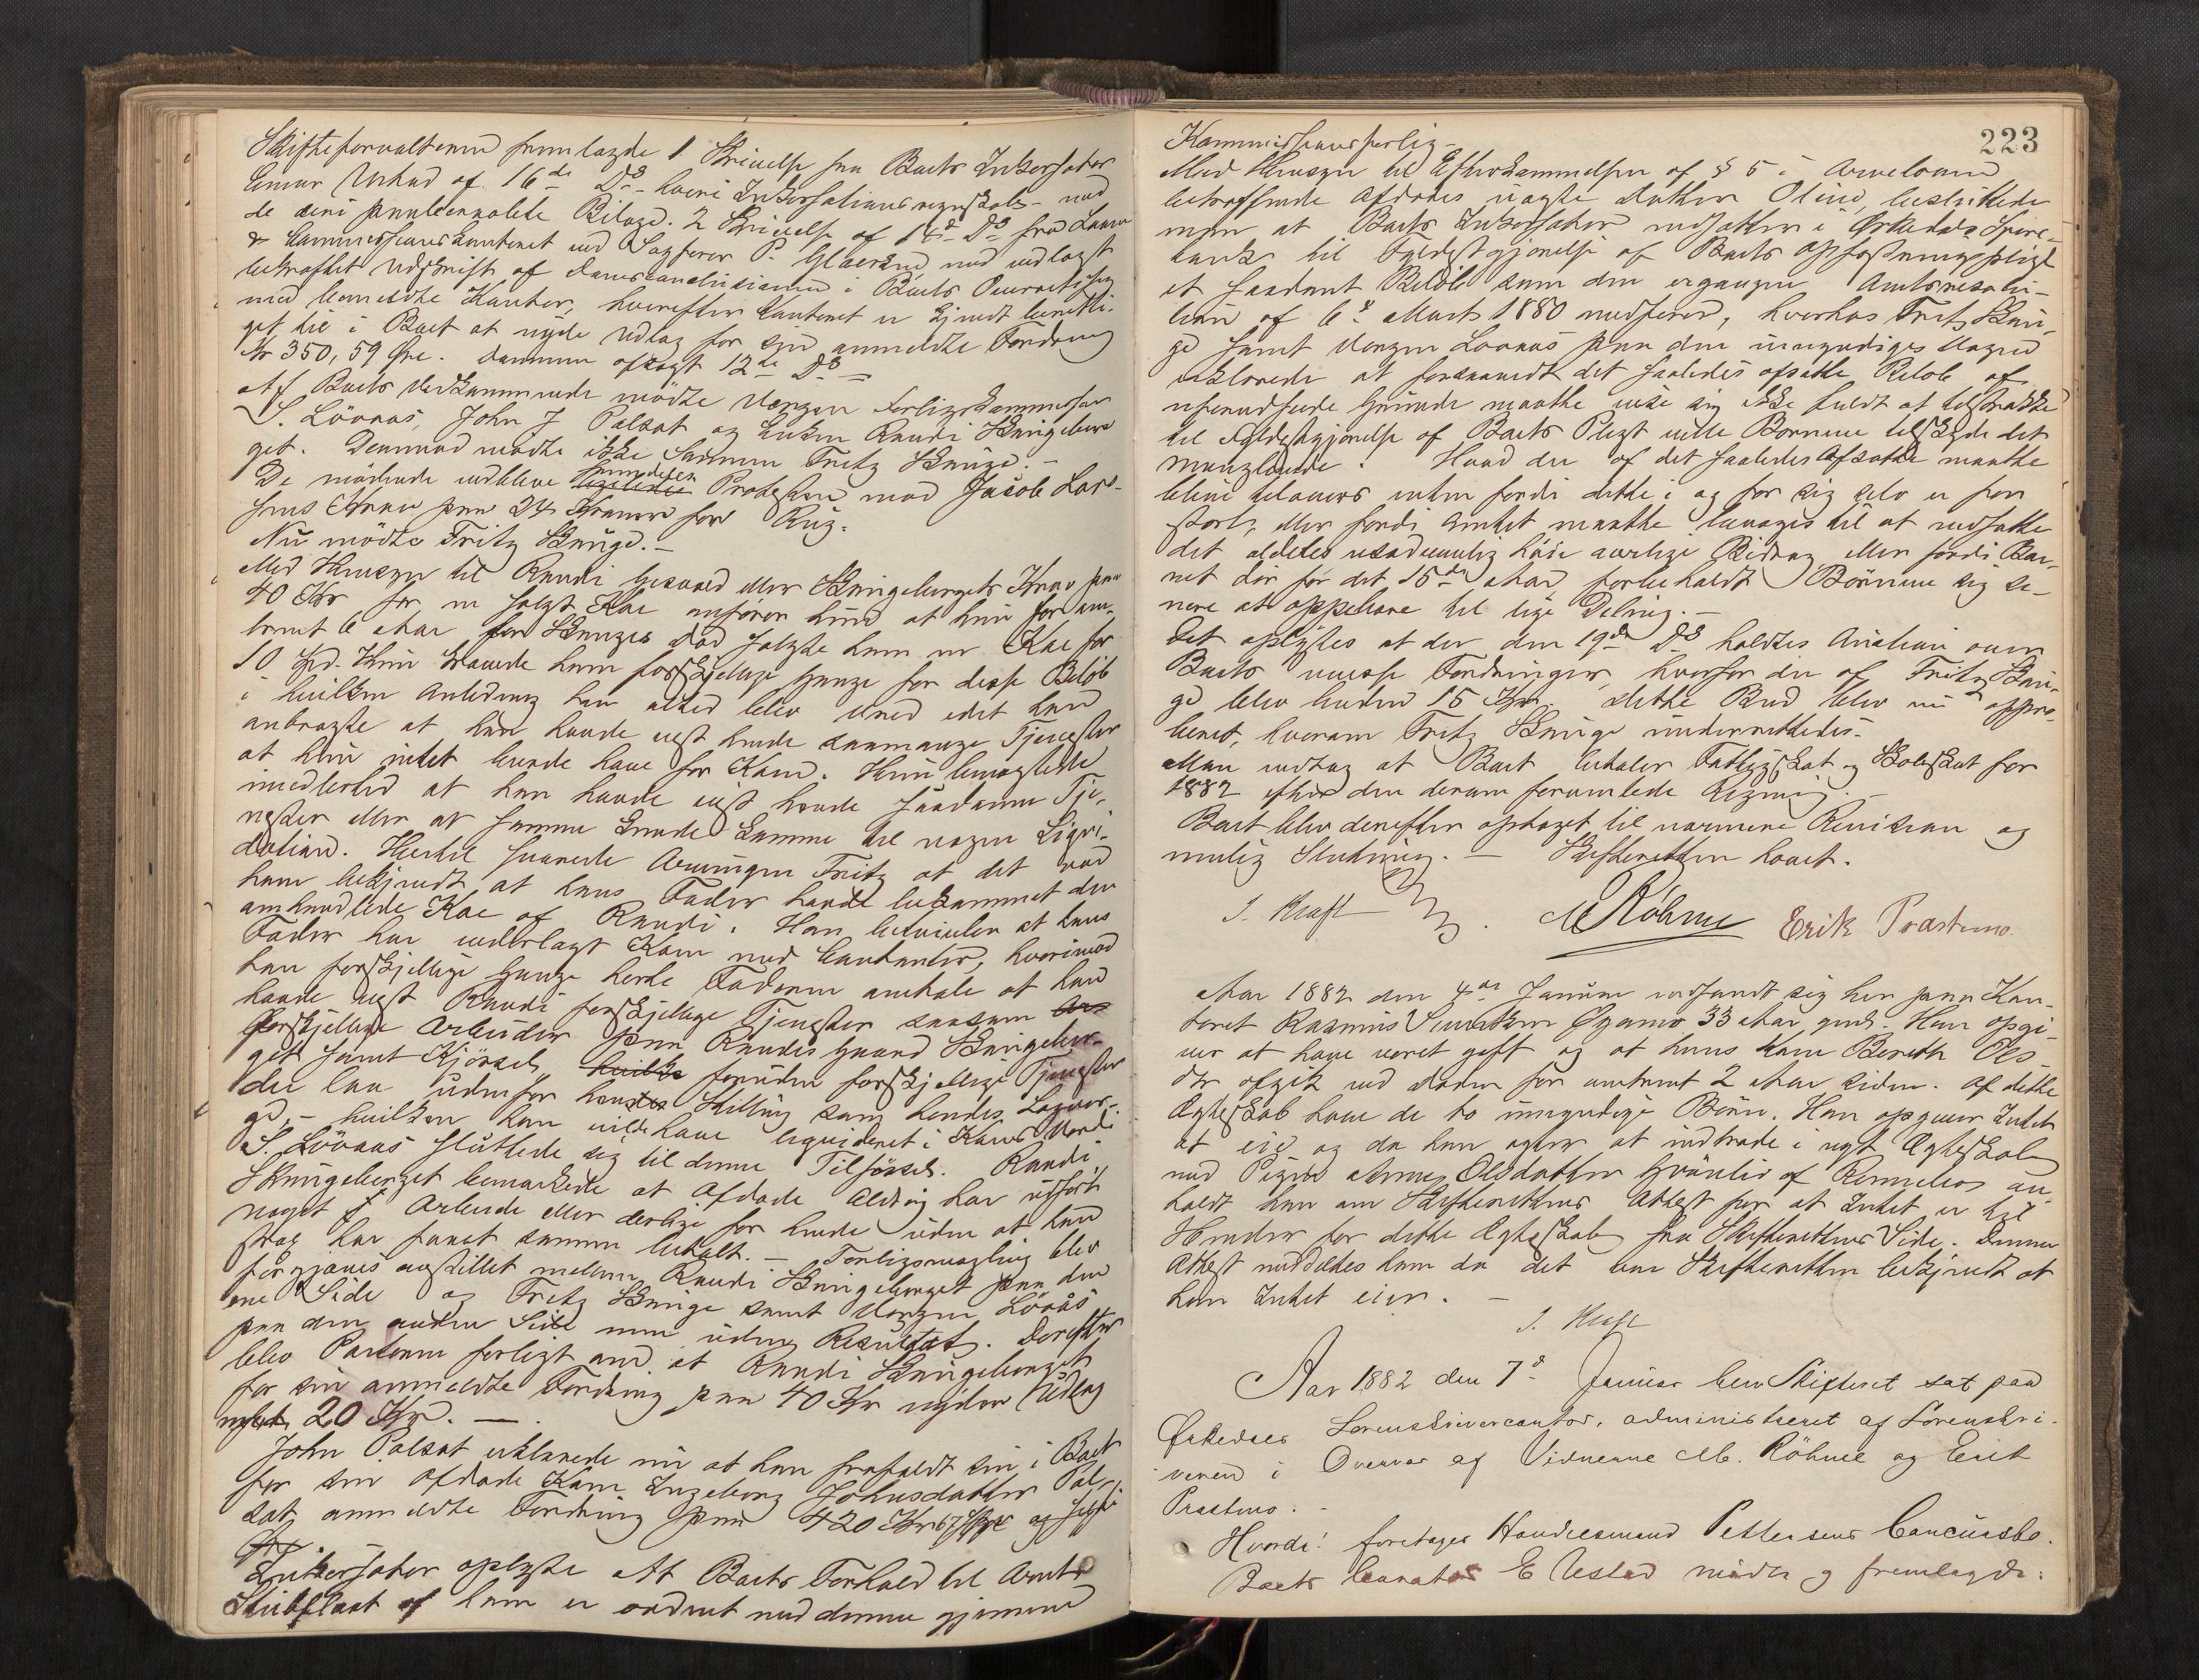 Skifteforvalteren fremlagde 1 Skrivelse fra Boets Inkassator
Einar Uestad af 16de Ds hvori Inkassationsregnskab med
de deri paaberaabte Bilage. 2 Skrivelse af 14de Ds fra Laane
& Commissionskontoret ved Sagfører P. Glærum med vedlagt
bekræftet Udskrift af Domsconclusionen i Boets
med bemeldte Kontor, hvorefter Contoret er kjendt beretti-
get til i Boet at nyde Udlæg for sin anmeldte Fordring
Kr 350,59 Øre. Dommen afsagt 12te Ds
Af Boets Vedkommende mødte Værgen Forligskommissær
S. Lövaas, John J Palsat og Enken Randi Skrugeberg-
get. Derimod mødte ikke Sønnen Fritz Skruge.-
De mødende vedbleve fremdeles Protesten mod Jacob Lar-
sens Krav paa 24 Kroner for Rug.
Nu mødte Fritz Skruge.-
Med Hensyn til Randi Skrugebergets Krav paa
40 Kr for en solgt Ko anfører hun at hun for om-
trent 6 Aar før Skruges Død solgte ham en Ko for
10 Spd. Hun krævede ham forskjellige Gange for disse Beløb
i hvilken Anledning han altid blev vred idet han
anbragte at han havde vist hende saamange Tjenester
at hun intet burde have for Koen. Hun benægtede
imidlertid at han havde vist hende saadanne Tje-
nester eller at samme kunde komme til nogen Liqvi-
dation. Hertil svarede Arvingen Fritz at det var
ham bekjendt at hans Fader havde bekommet den
omhandlede Ko af Randi. Han betviler at hans
Fader har vederlagt Koen med Contanter, hvorimod
han forskjellige Gange hørte Faderen omtale at han
havde vist Randi forskjellige Tjenester saasom
forskjellige Arbeider paa Randis Gaard Skrugeber-
get samt Kjørsel, foruden forskjellige Tjenester
der laa udenfor hans Stilling som hendes Lagvær-
ge,- hvilken han vilde have liqvideret i Koens Værdi.
S. Lövaas sluttede sig til denne Tilførsel. Randi
Skrugeberget bemærkede at Afdøde Aldrig har udført
noget Arbeide eller deslige for hende uden at han
strax har faaet samme betalt.- Forligsmægling blev
forgjæves anstillet mellem Randi Skrugeberget paa den
ene Side og Fritz Skruge samt Værgen Lövaas
paa den anden Side men uden Resultat. Derefter
blev Parterne forligt om at Randi Skrugeberget
for sin anmeldte Fordring paa 40 Kr nyder Udlæg
20 Kr.-
John Palsat erklærede nu at han frafaldt sin i Boet
for sin afdøde Kone Ingeborg Johnsdatter Pal-
sat anmeldte Fordring paa 420 Kr 67 Øre og
Inkassator oplyste At Boets Forhold til
af ham er ordnet med denne gjennem
223
Kommissionsforlig-
Med Hensyn til Efterkommelsen af § 5 i Arveloven
betreffende Afdødes uægte Datter Oline, besluttede
man at Boets Inkassator indsætter i Ørkedals Spare-
bank til Fyldestgjørelse af Boets Opfostringspligt
et saadant Beløb som den ergangne Amtsresolu-
tion af 6te Marts 1880 medfører, hvorhos Fritz Skru-
ge samt Værgen Lovaas paa den umyndiges Vegne
erklærede at forsaavidt det saaledes afsatte Beløb af
uforudseede Grunde maatte vise sig ikke fuldt at tilstrække
til Fyldestgjørelse af Boets Pligt ville Børnene tilskyde det
manglende. Hvad der af det saaledes Afsatte maatte
blive tilovers enten fordi dette i og for sig selv er for
stort, eller fordi Amtet maatte bevæges til at nedsætte
det aldeles usædvanlig høie aarlige Bidrag eller fordi Bar-
net dør før det 15de Aar, forbeholdt Børnene sig se-
nere at oppebære til lige Deling.-
Det oplystes at der den 19de Ds holdtes Auction over
Boets uvisse Fordringer, hvorfor der af Fritz Skru-
ge blev buden 15 Kr. Dette Bud blev nu appro-
beret, hvorom Fritz Skruge underrettedes.
Man vedtog at Boet betaler Fattigskat og Skoleskat for
1882 efter den derom formelede Ligning.-
Boet blev derefter optaget til nærmere Revision og
mulig Slutning.- Skifteretten hævet.
J. Kraft M Röhme Erik Præstmo.
Aar 1882 den 4de Januar indfandt sig her paa Kon-
toret Rasmus Sivertsen Øyamo 33 Aar gml. Han opgi-
ver at have været gift og at hans Kone Bereth Ols-
dtr afgik ved Døden for omtrent 2 Aar siden. Af dette
Ægteskab have de to umyndige Børn. Han opgiver Intet
at eie og da han agter at indtræde i nyt Ægteskab
med Pigen Anne Olsdatter Grönlie af Rennebo an-
holdt han om Skifterettens Attest for at Intet er til
Hinder for dette Ægteskab fra Skifterettens Side. Denne
Attest meddeltes ham da det var Skifteretten bekjendt at
han Intet eier.-
J. Kraft
Aar 1882 den 7de Januar blev Skifteret sat paa
Ørkedals Sorenskrivercontor, administreret af Sorenskri-
veren i Overvær af Vidnerne M. Röhme og Erik
Præstmo.-
Hvorda: foretages Handelsmand Pettersens Concursbo.
Boets Curator E Uestad mødte og fremlagde: